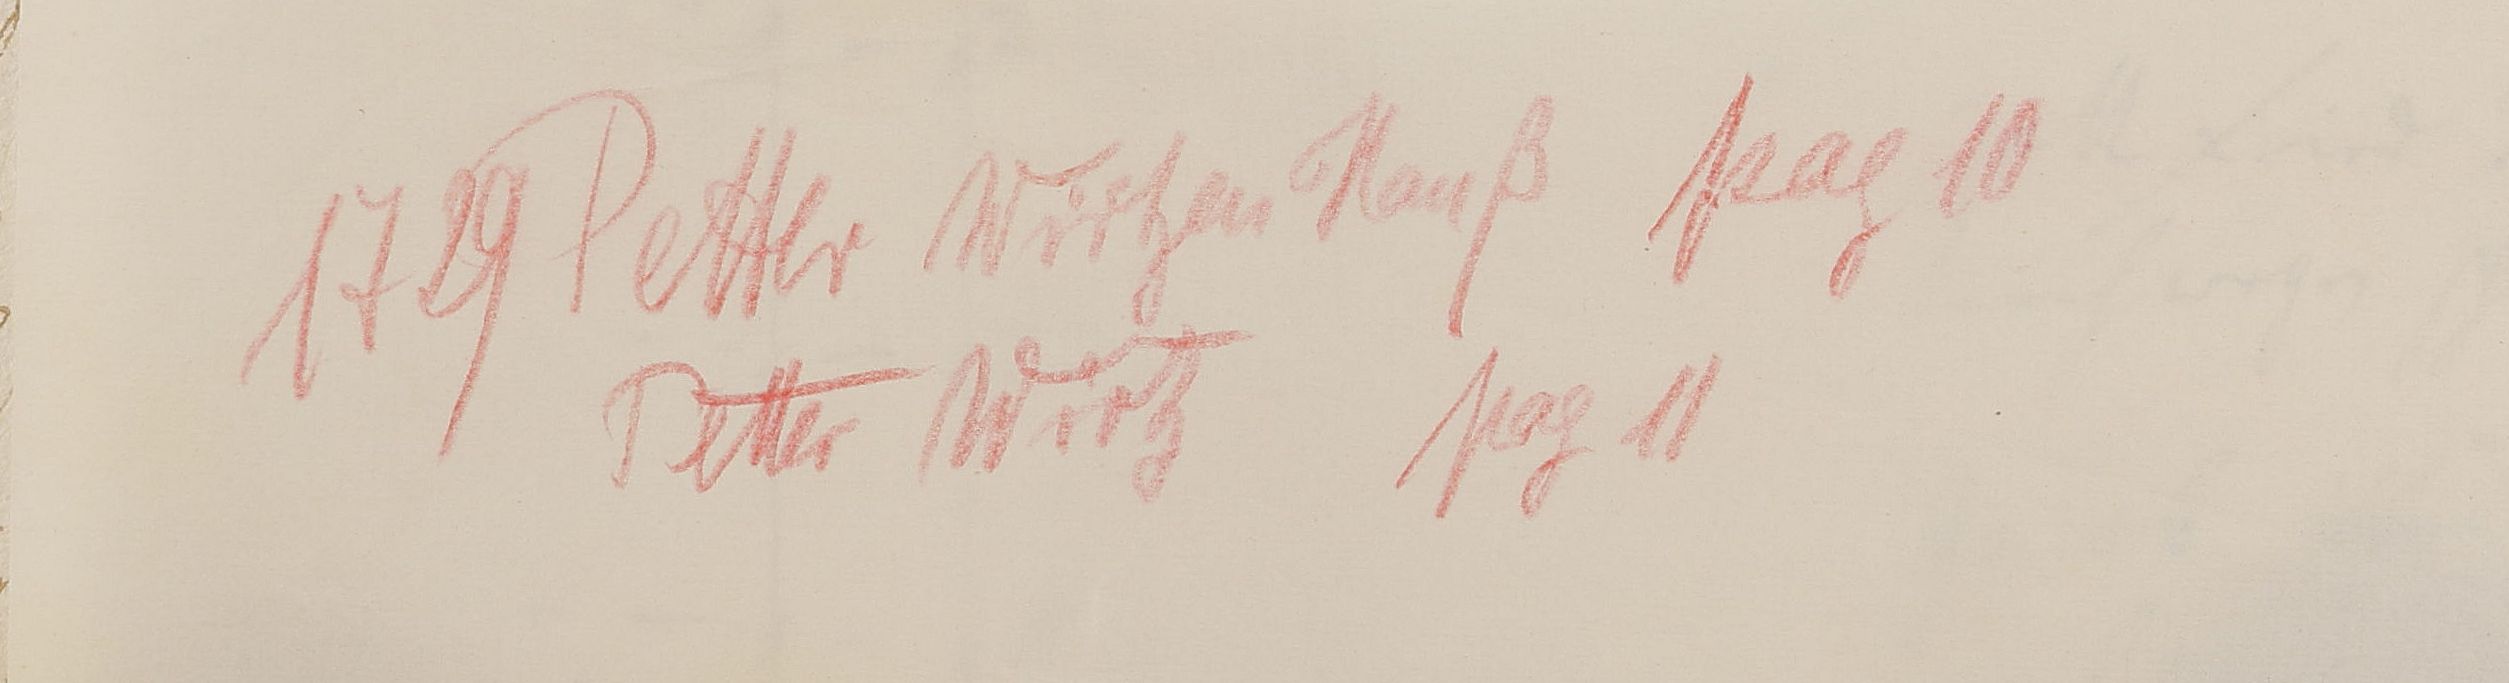 1729 Petter Wirtzen Hauß pag 10
Petter Wirtz pag 11